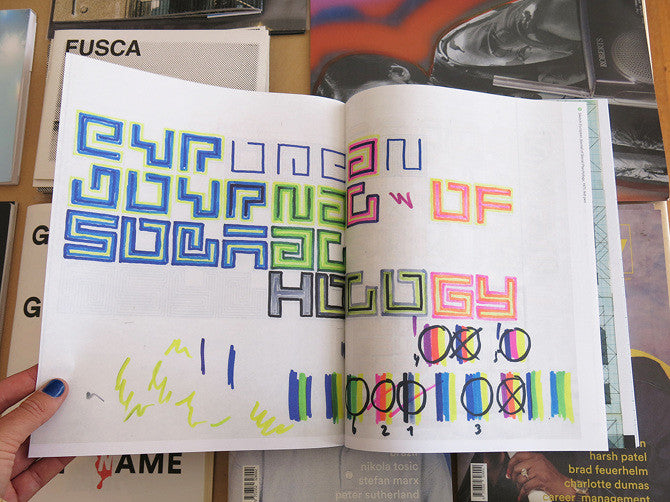 FUSCA
ROBERTS
EUROPEAN
JOURNAL W OF
SOCIAL
HOLOGY
G
G
6 2 1 3
NAME
brazil
nikola tosic
stefan marx
peter sutherland
harsh patel
brad feuerhelm
charlotte dumas
career management